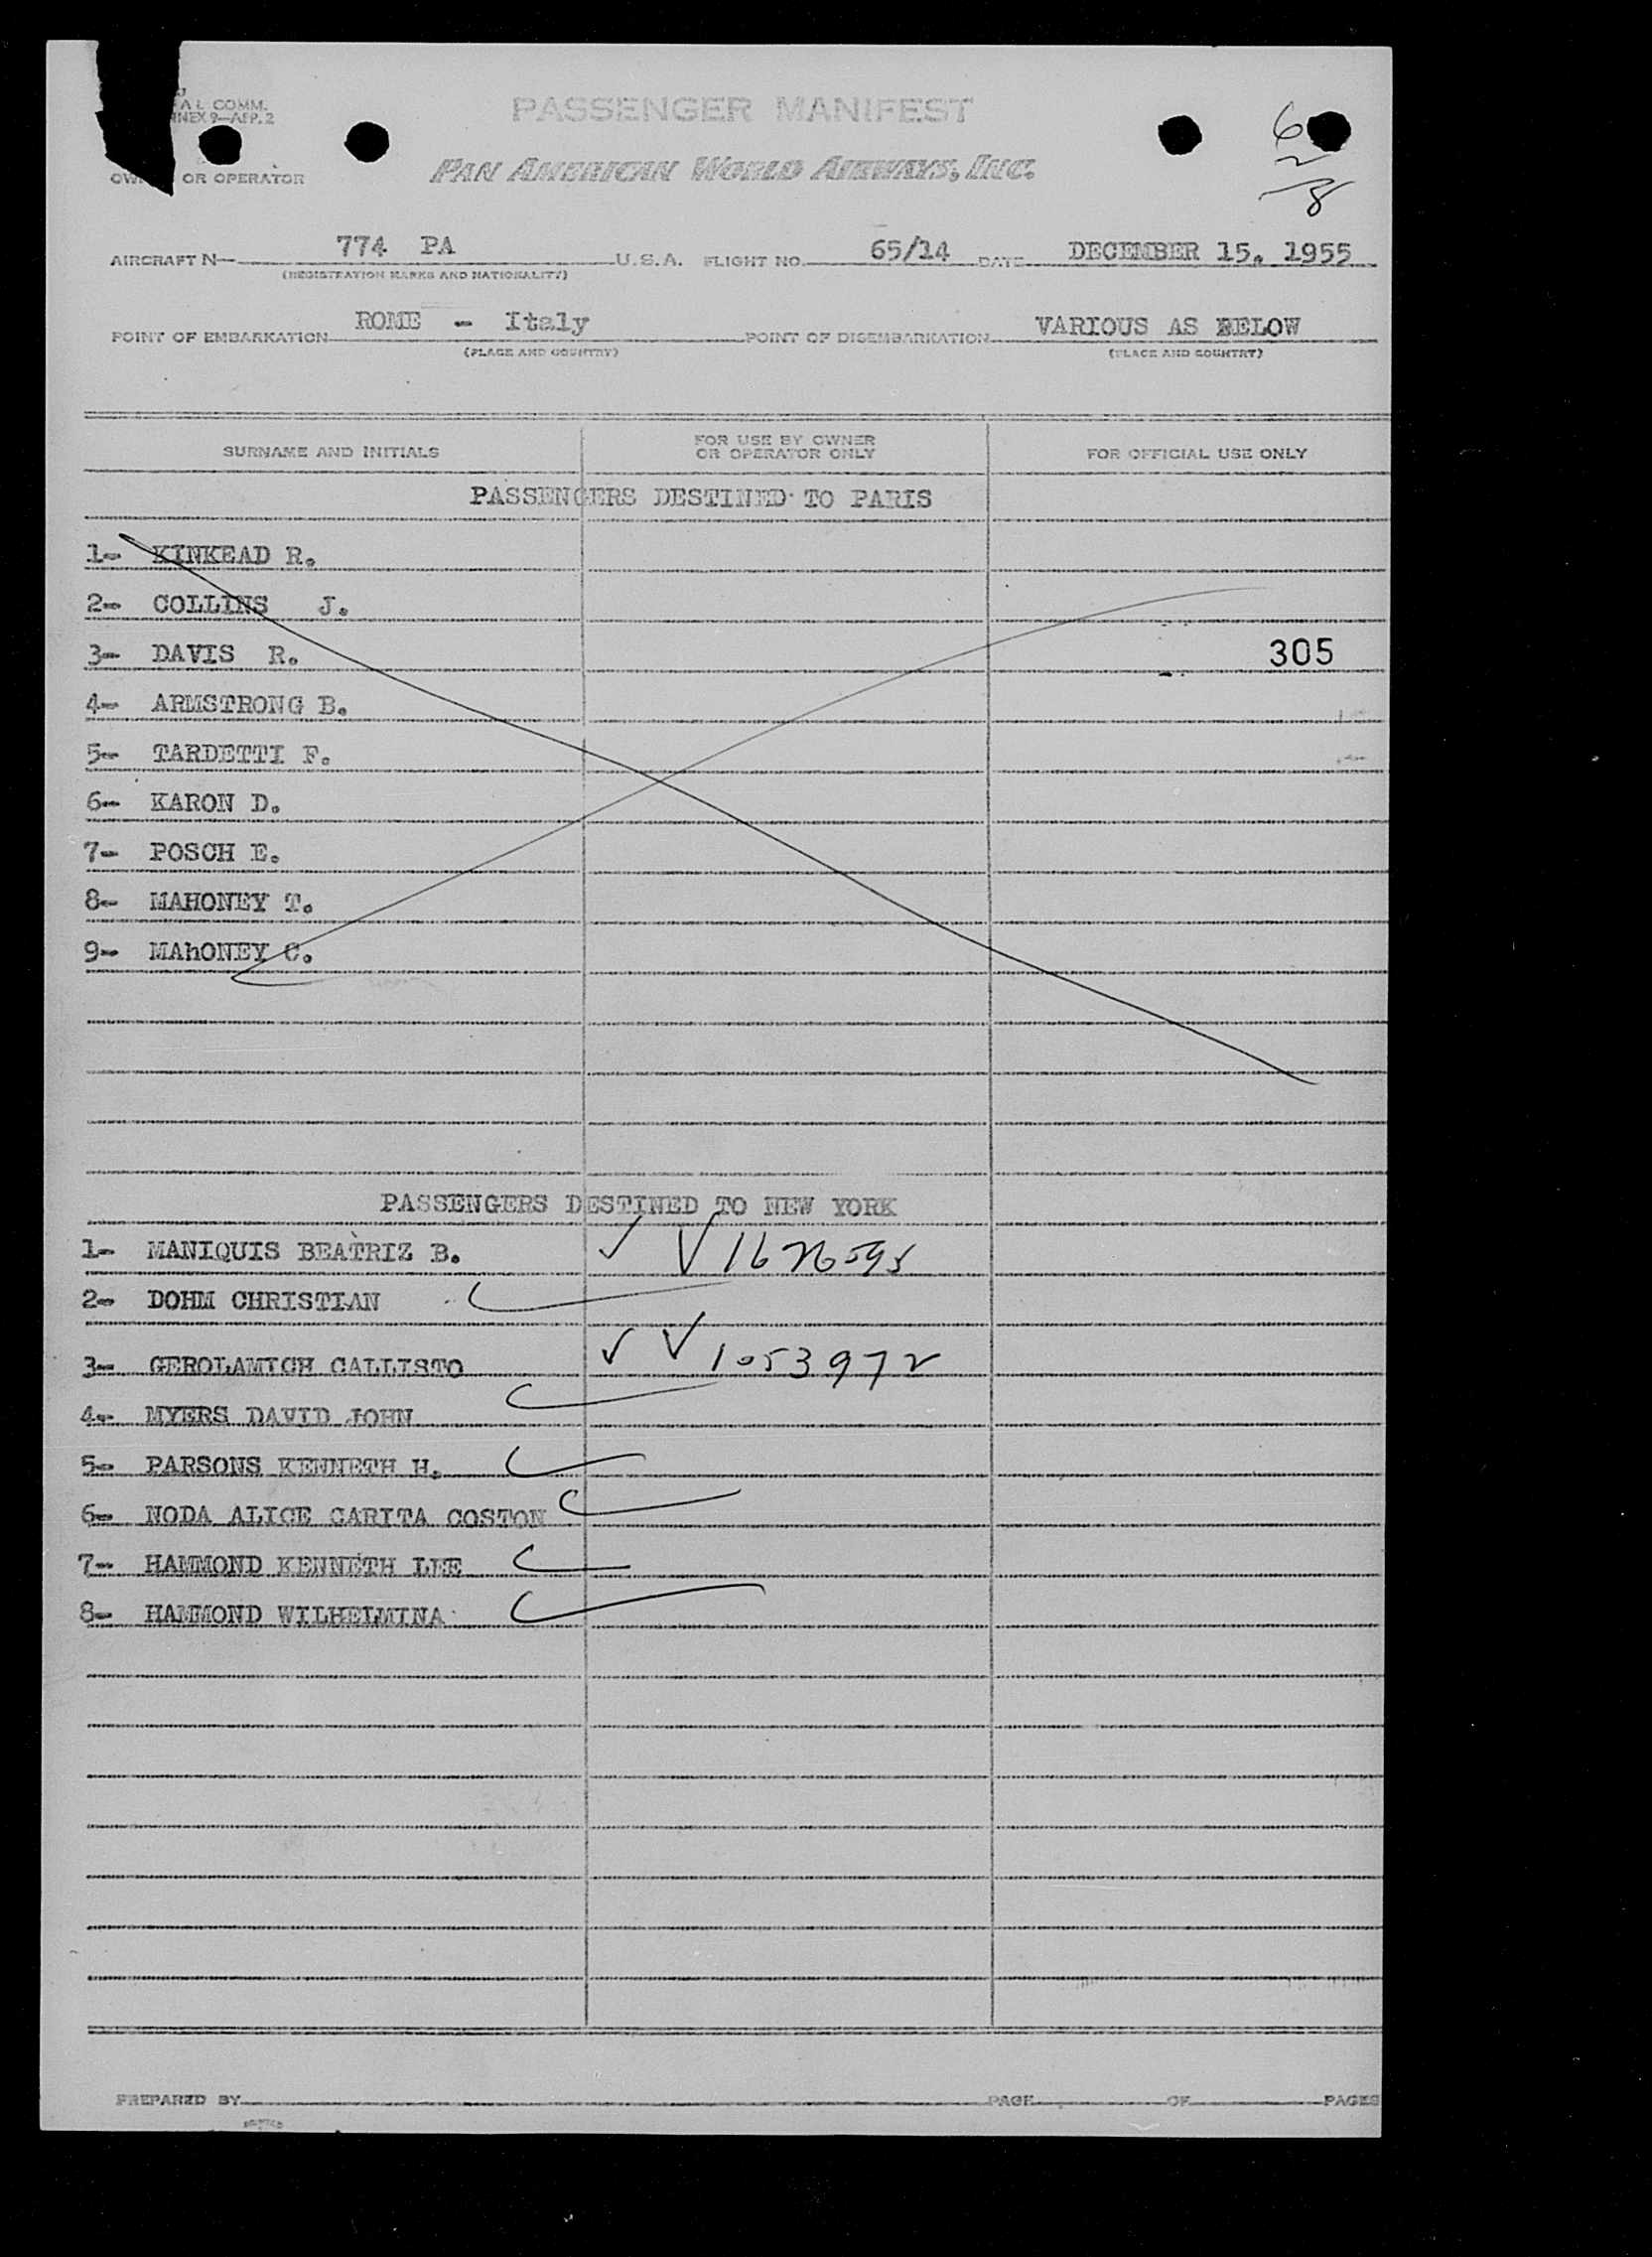 AL COMM.
NNEX 9—APP. 2
OR OPERATOR
PASSENGER MANIFEST
PAN AMERICAN WORLD AIRWAYS, INC.
6
2
8
AIRCRAFT N— 774 PA U.S.A. FLIGHT NO. 65/14 DATE DECEMBER 15, 1955
(REGISTRATION MARKS AND NATIONALITY)
POINT OF EMBARKATION ROME - Italy POINT OF DISEMBARKATION VARIOUS AS BELOW
(PLACE AND COUNTRY) (PLACE AND COUNTRY)
SURNAME AND INITIALS FOR USE BY OWNER OR OPERATOR ONLY FOR OFFICIAL USE ONLY
PASSENGERS DESTINED TO PARIS
1- KINKEAD R.
2- COLLINS J.
3- DAVIS R. 305
4- ARMSTRONG B.
5- TARDETTI F.
6- KARON D.
7- POSCH E.
8- MAHONEY T.
9- MAhONEY C.
PASSENGERS DESTINED TO NEW YORK
1- MANIQUIS BEATRIZ B. ✓ ✓
2- DOHM CHRISTIAN
3- GEROLAMICH CALLISTO ✓ ✓ 1053972
4- MYERS DAVID JOHN
5- PARSONS KENNETH H.
6- NODA ALICE CARITA COSTON
7- HAMMOND KENNETH LEE
8- HAMMOND WILHELMINA
PREPARED BY PAGE OF PAGES